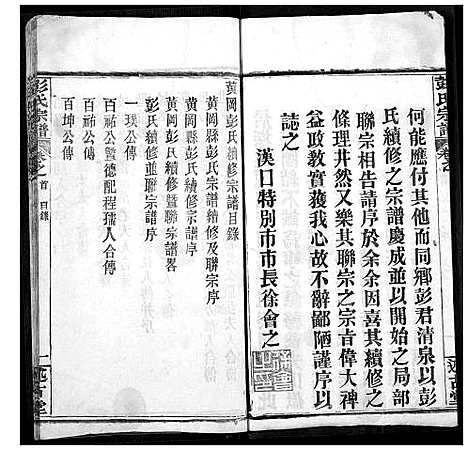 彭氏宗譜
何能應付其他而同鄉彭君清泉以彭
氏續修之宗譜慶成並以開始之局部
聯宗相告請序於余余因喜其續修之
條理井然又樂其聯宗之宗旨偉大裨
益政教實獲我心故不辭鄙陋謹序以
誌之
漢口特別市市長徐會之
黃岡彭氏續修宗譜目錄
黃岡縣彭氏宗譜續修及聯宗序
黃岡彭氏續修宗譜畧
彭氏續修並聯宗譜序
一璞公傳
百祐公暨德配程孺人合傳
百祐公傳
百坤公傳
彭氏宗譜 卷之首 目錄 一 述古堂